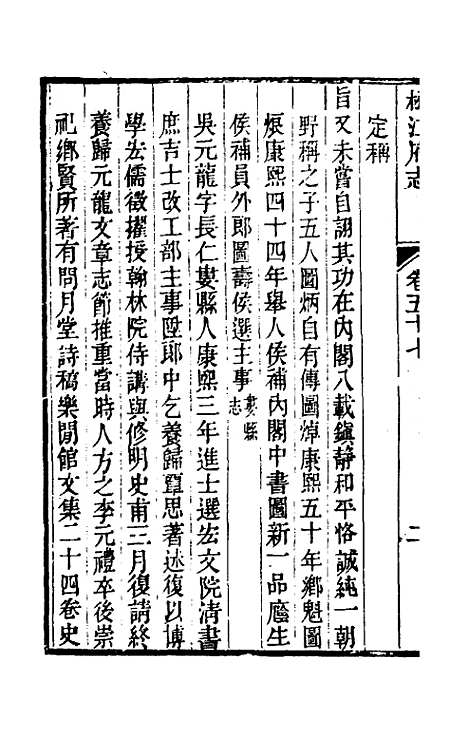 松江府志
卷五十七
二
定稱
旨又未嘗自詡其功在內閣八載鎮靜和平恪誠純一朝
野稱之子五人圖炳自有傳圖焯康熙五十年鄉魁圖
煐康熙四十四年舉人侯補內閣中書圖新一品廕生
侯補員外郎圖壽侯選主事婁縣志
吳元龍字長仁婁縣人康熙三年進士選宏文院清書
庶吉士改工部主事陞郎中乞養歸覃思著述復以博
學宏儒徵擢授翰林院侍講與修明史甫三月復請終
養歸元龍文章志節推重當時人方之李元禮卒後崇
祀鄉賢所著有問月堂詩稿樂閒館文集二十四卷史